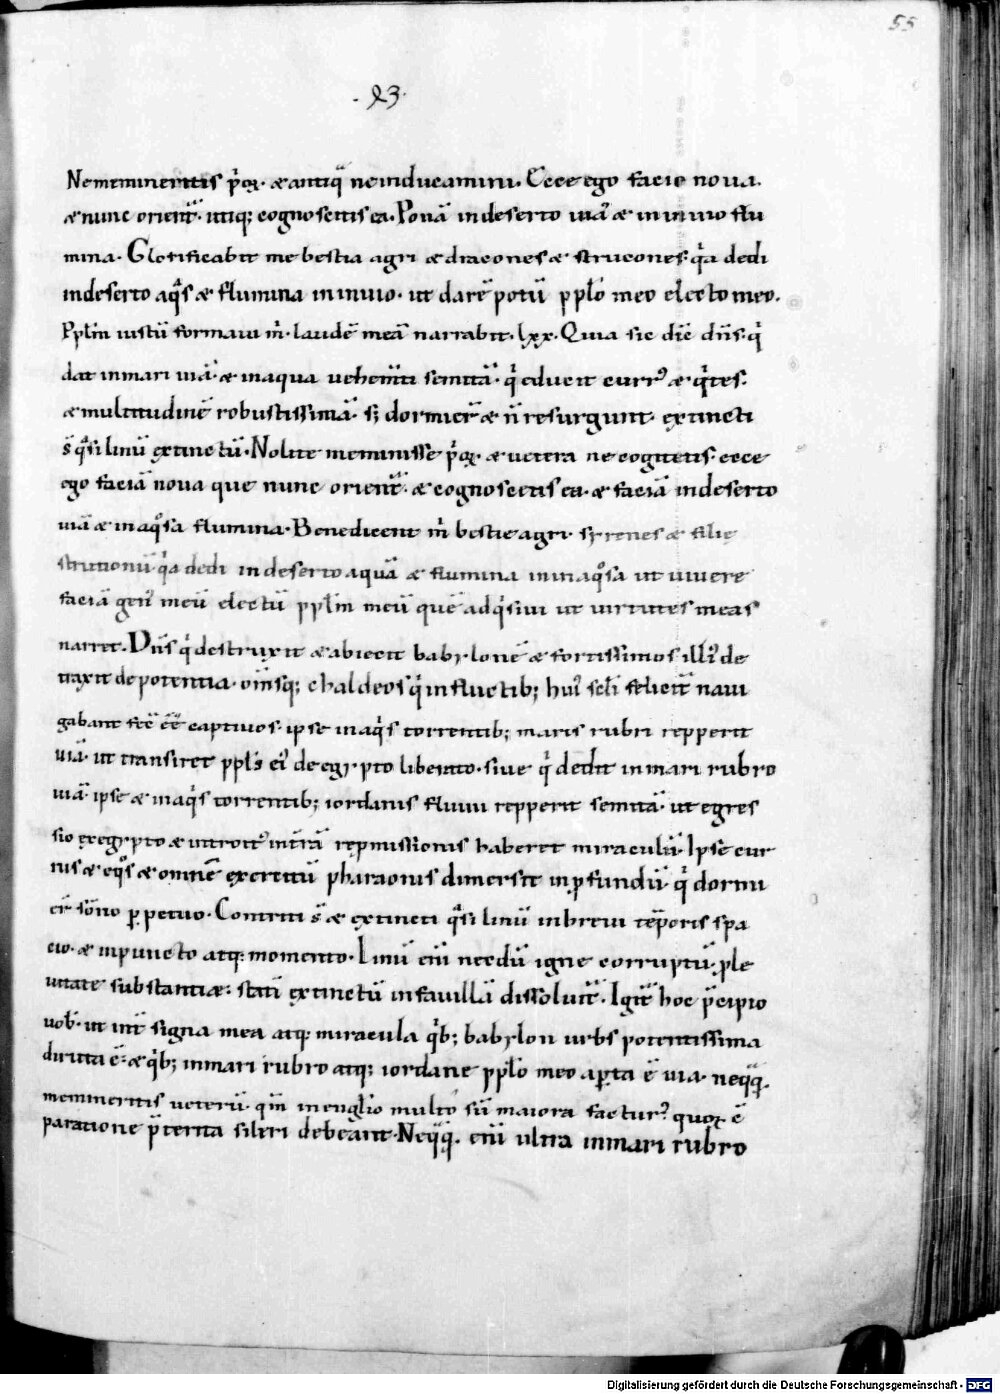 55
.93.
Ne memineritis p̄oꝝ. & antiq̄ ne inducamini. Ecce ego facio noua.
& nunc orient̄. utiq; cognoscetis ea. Ponā in deserto uiā & in inuio flu
mina. Glorificabit me bestia agri & dracones & strucones. q̄a dedi
in deserto aq̄s & flumina in inuio. ut darē potū pp̄lo meo electo meo.
Pp̄lm̄ istū formaui m̄. laudē meā narrabit. lxx. Quia sic dic̄ dn̄s. q̄
dat in mari uiā. & in aqua uehem̄ti semitā. q̄ eduxit curr᷒ & eq̄tes.
& multitudinē robustissimā. s; dormier̄ & n̄ resurgunt. extincti
s̄ q̄si linū extinctū. Nolite meminisse p̄oꝝ. & uetera ne cogitetis. ecce
ego faciā noua que nunc orient̄. & cognoscetis ea. & faciā in deserto
uiā & inaq̊sa flumina. Benedicent m̄ bestie agri. syrenes & filię
strutionū. q̄a dedi in deserto aquā & flumina in inaq̊sa ut uiuere
faciā gen᷒ meū electū pp̄lm̄ meū quē adq̄siui ut uirtutes meas
narret. Dn̄s q̄ destruxit & abiecit babylonē & fortissimos illi᷒ de
traxit de potentia. om̄sq; chaldeos q̄ in fluctib; hui᷒ sc̄li felicit̄ naui
gabant fec̄ cē̄ captiuos. ipse in aq̄s torrentib; maris rubri repperit
uiā. ut transiret pp̄ls ei᷒ de egypto liberato. siue q̄ dedit in mari rubro
uiā. ipse & in aq̄s torrentib; iordanis fluuii repperit semitā. ut egres
sio ex egypto & introit᷒ in t̄rā repmissionis haberet miraculū. Ipse cur
rus & eq̊s & omnē exercitū pharaonis dimersit in ꝓfundū. q̄ dormi
er̄ sōno ꝑpetuo. Contriti s̄ & extincti q̄si linū in breui tēporis spa
cio. & in puncto atq; momento. Linū eni necdū igne corruptū. ple
nitate substantiæ: statī extinctū in fauillā dissoluit̄. Igit̄ hoc p̄cipio
uob̄. ut int̄ signa mea atq; miracula q̄b; babylon urbs potentissima
diruta ē. & q̄b; in mari rubro atq; iordane pp̄lo meo aꝑta ē uia. neq̄q̄.
memineritis ueterū. qm̄ in euglio multo sū maiora factur᷒. quoꝝ ē
paratione p̄terita sileri debeant. Neq̄q̄. eni ultra in mari rubro
Digitalisierung gefördert durch die Deutsche Forschungsgemeinschaft - DFG